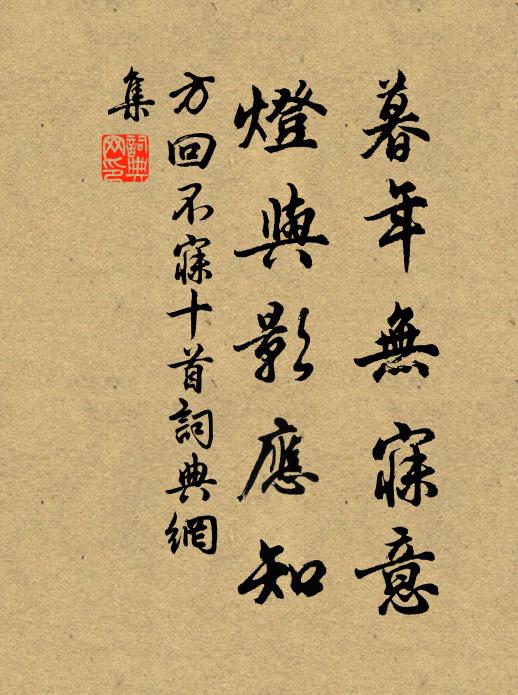 暮年無寐意
燈與影應知
方回不寐十首詞典網
集
詞典
网印